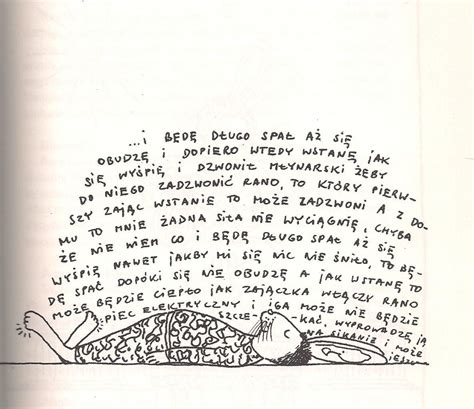 ...I BĘDĘ DŁUGO SPAŁ AŻ SIĘ
OBUDZĘ I DOPIERO WTEDY WSTANĘ JAK
SIĘ WYŚPIĘ I DZWONIŁ MŁYNARSKI ŻEBY
DO NIEGO ZADZWONIĆ RANO, TO KTÓRY PIERW-
SZY ZAJĄC WSTANIE TO MOŻE ZADZWONI A Z DO-
MU TO MNIE ŻADNA SIŁA NIE WYCIĄGNIE, CHYBA
ŻE NIE WIEM CO I BĘDĘ DŁUGO SPAŁ AŻ SIĘ
WYŚPIĘ NAWET JAKBY MI SIĘ NIC NIE ŚNIŁO, TO BĘ-
DĘ SPAĆ DOPÓKI SIĘ NIE OBUDZĘ A JAK WSTANĘ TO
MOŻE BĘDZIE CIEPŁO JAK ZAJĄCZKA WŁĄCZY RANO
PIEC ELEKTRYCZNY I IGA MOŻE NIE BĘDZIE
SZCZE- KAĆ, WYPROWADZĘ JĄ
NA SIKANIE I MOŻE
JESZCZ